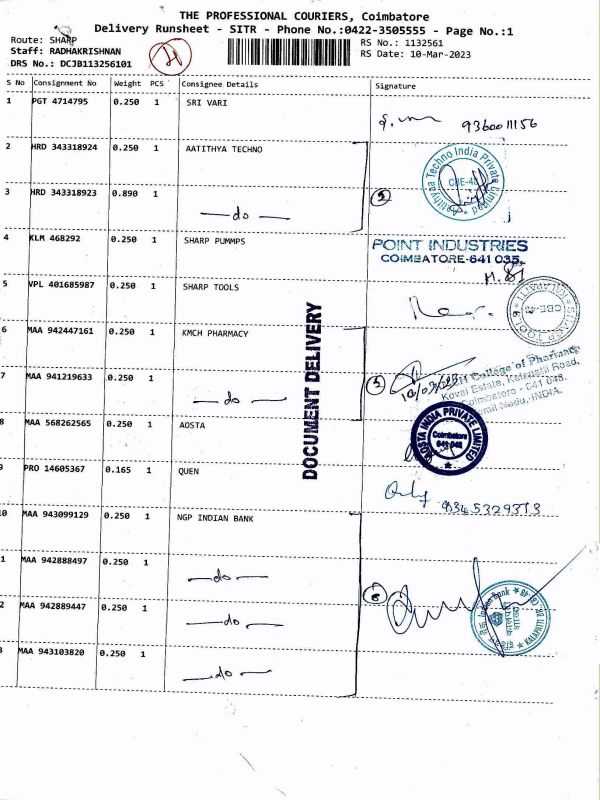 THE PROFESSIONAL COURIERS, Coimbatore
Delivery Runsheet - SITR - Phone No.:0422-3505555 - Page No.:1
Route: SHARP
Staff: RADHAKRISHNAN
DRS No.: DCJB113256101
RS No.: 1132561
RS Date: 10-Mar-2023
S No Consignment No Weight PCS Consignee Details Signature
1 PGT 4714795 0.250 1 SRI VARI
9360011156
2 HRD 343318924 0.250 1 AATITHYA TECHNO
Aatithyaa Techno India Private Limited
3 HRD 343318923 0.890 1 —do—
4 KLM 468292 0.250 1 SHARP PUMMPS
POINT INDUSTRIES
COIMBATORE-641 035.
5 VPL 401685987 0.250 1 SHARP TOOLS
SHARP TOOLS
6 MAA 942447161 0.250 1 KMCH PHARMACY
DOCUMENT DELIVERY
7 MAA 941219633 0.250 1 —do—
10/03/23
College of Pharmacy
Kovai Estate, Kalapatti Road,
Coimbatore - 641 048.
Tamil Nadu, INDIA.
8 MAA 568262565 0.250 1 AOSTA
AOSTA INDIA PRIVATE LIMITED
Coimbatore
641 048
9 PRO 14605367 0.165 1 QUEN
9345329373
10 MAA 943099129 0.250 1 NGP INDIAN BANK
1 MAA 942888497 0.250 1 —do—
2 MAA 942889447 0.250 1 —do—
Indian Bank
KALAPATTI
3 MAA 943103820 0.250 1 —do—